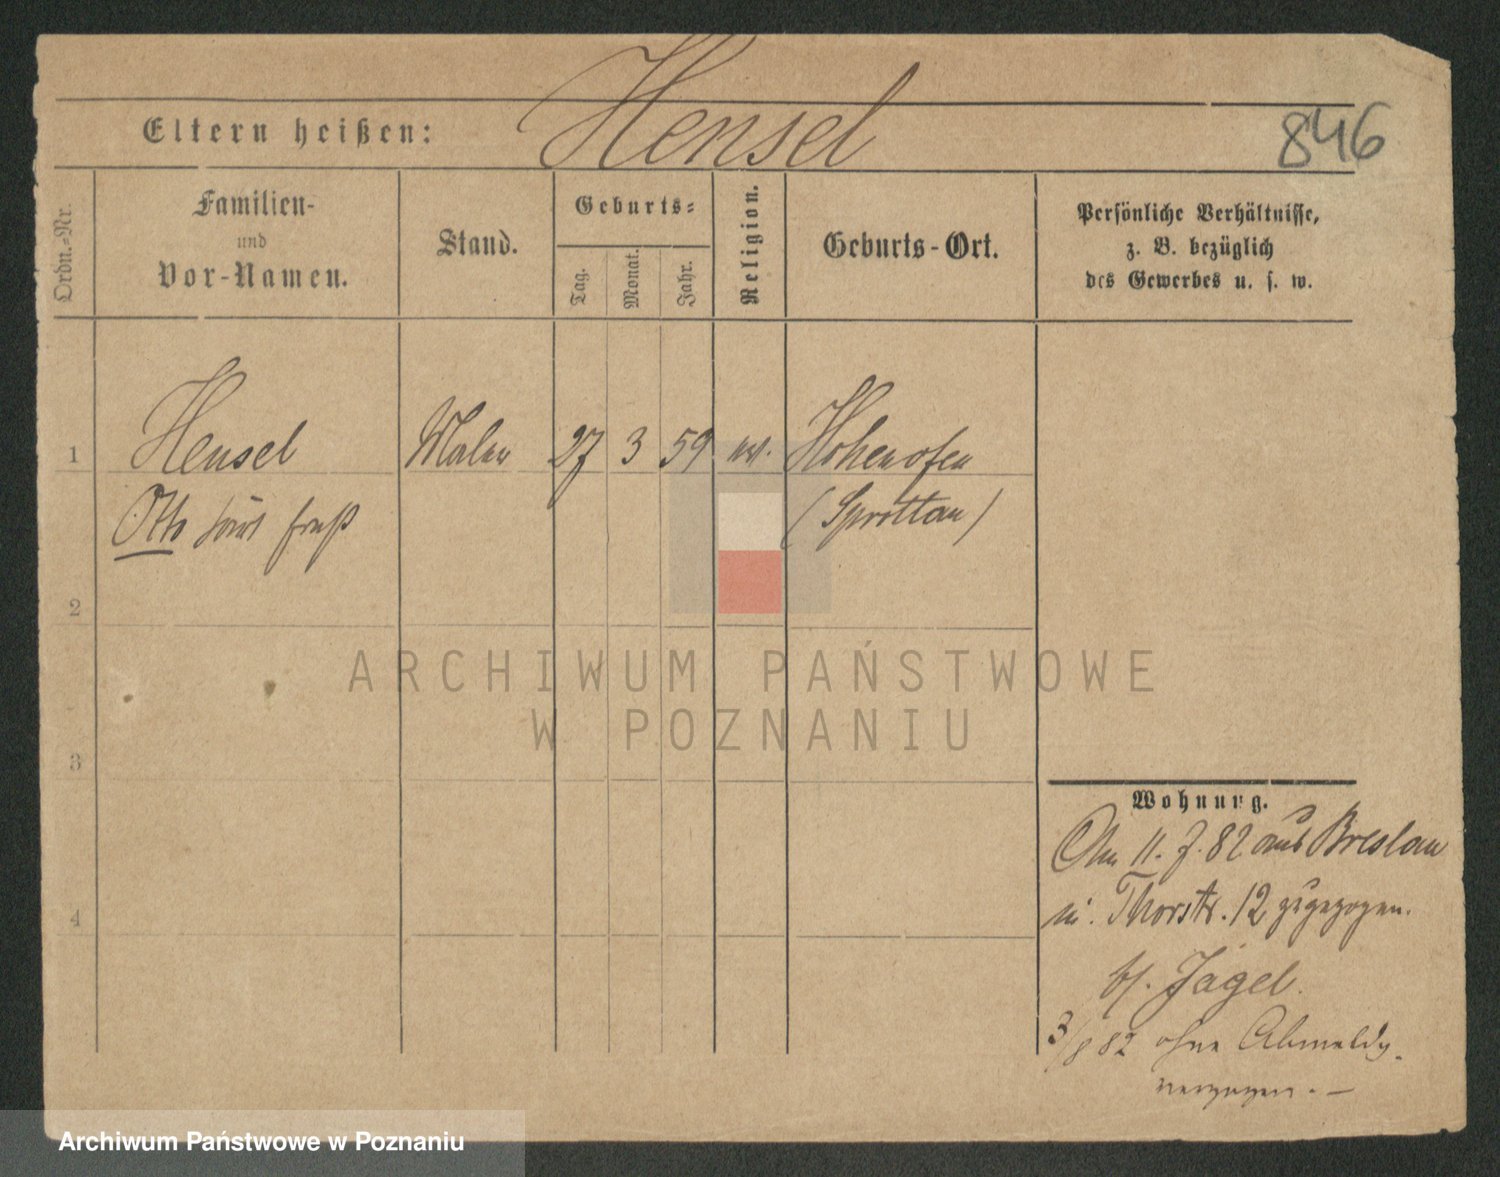 Hensel
846
Eltern heißen:
Ordn.-Nr.
Familien-
und
Vor-Namen.
Stand.
Geburts-
Tag.
Monat.
Jahr.
Religion.
Geburts-Ort.
Persönliche Verhältnisse,
z. B. bezüglich
des Gewerbes u. s. w.
1
Hensel
Maler
27
3
59
Hohenofen
Otto
(Sprottau)
2
3
4
Wohnung.
Am 11. 7. 82 aus Breslau
Thorstr. 12 zugezogen.
Jagel.
3/8 82 ohne Abmeldg.
verzogen. —
ARCHIWUM PAŃSTWOWE
W POZNANIU
Archiwum Państwowe w Poznaniu